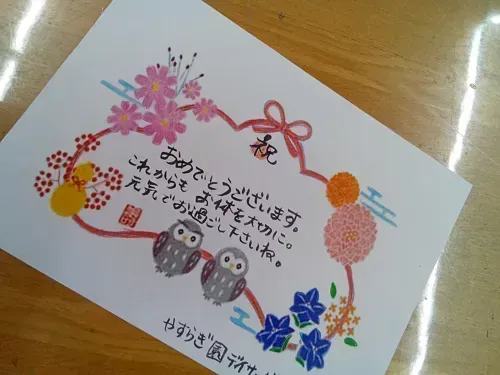 祝
おめでとうございます。
これからも お体を大切に。
元気でお過ごし下さいね。
やすらぎ園デイサ